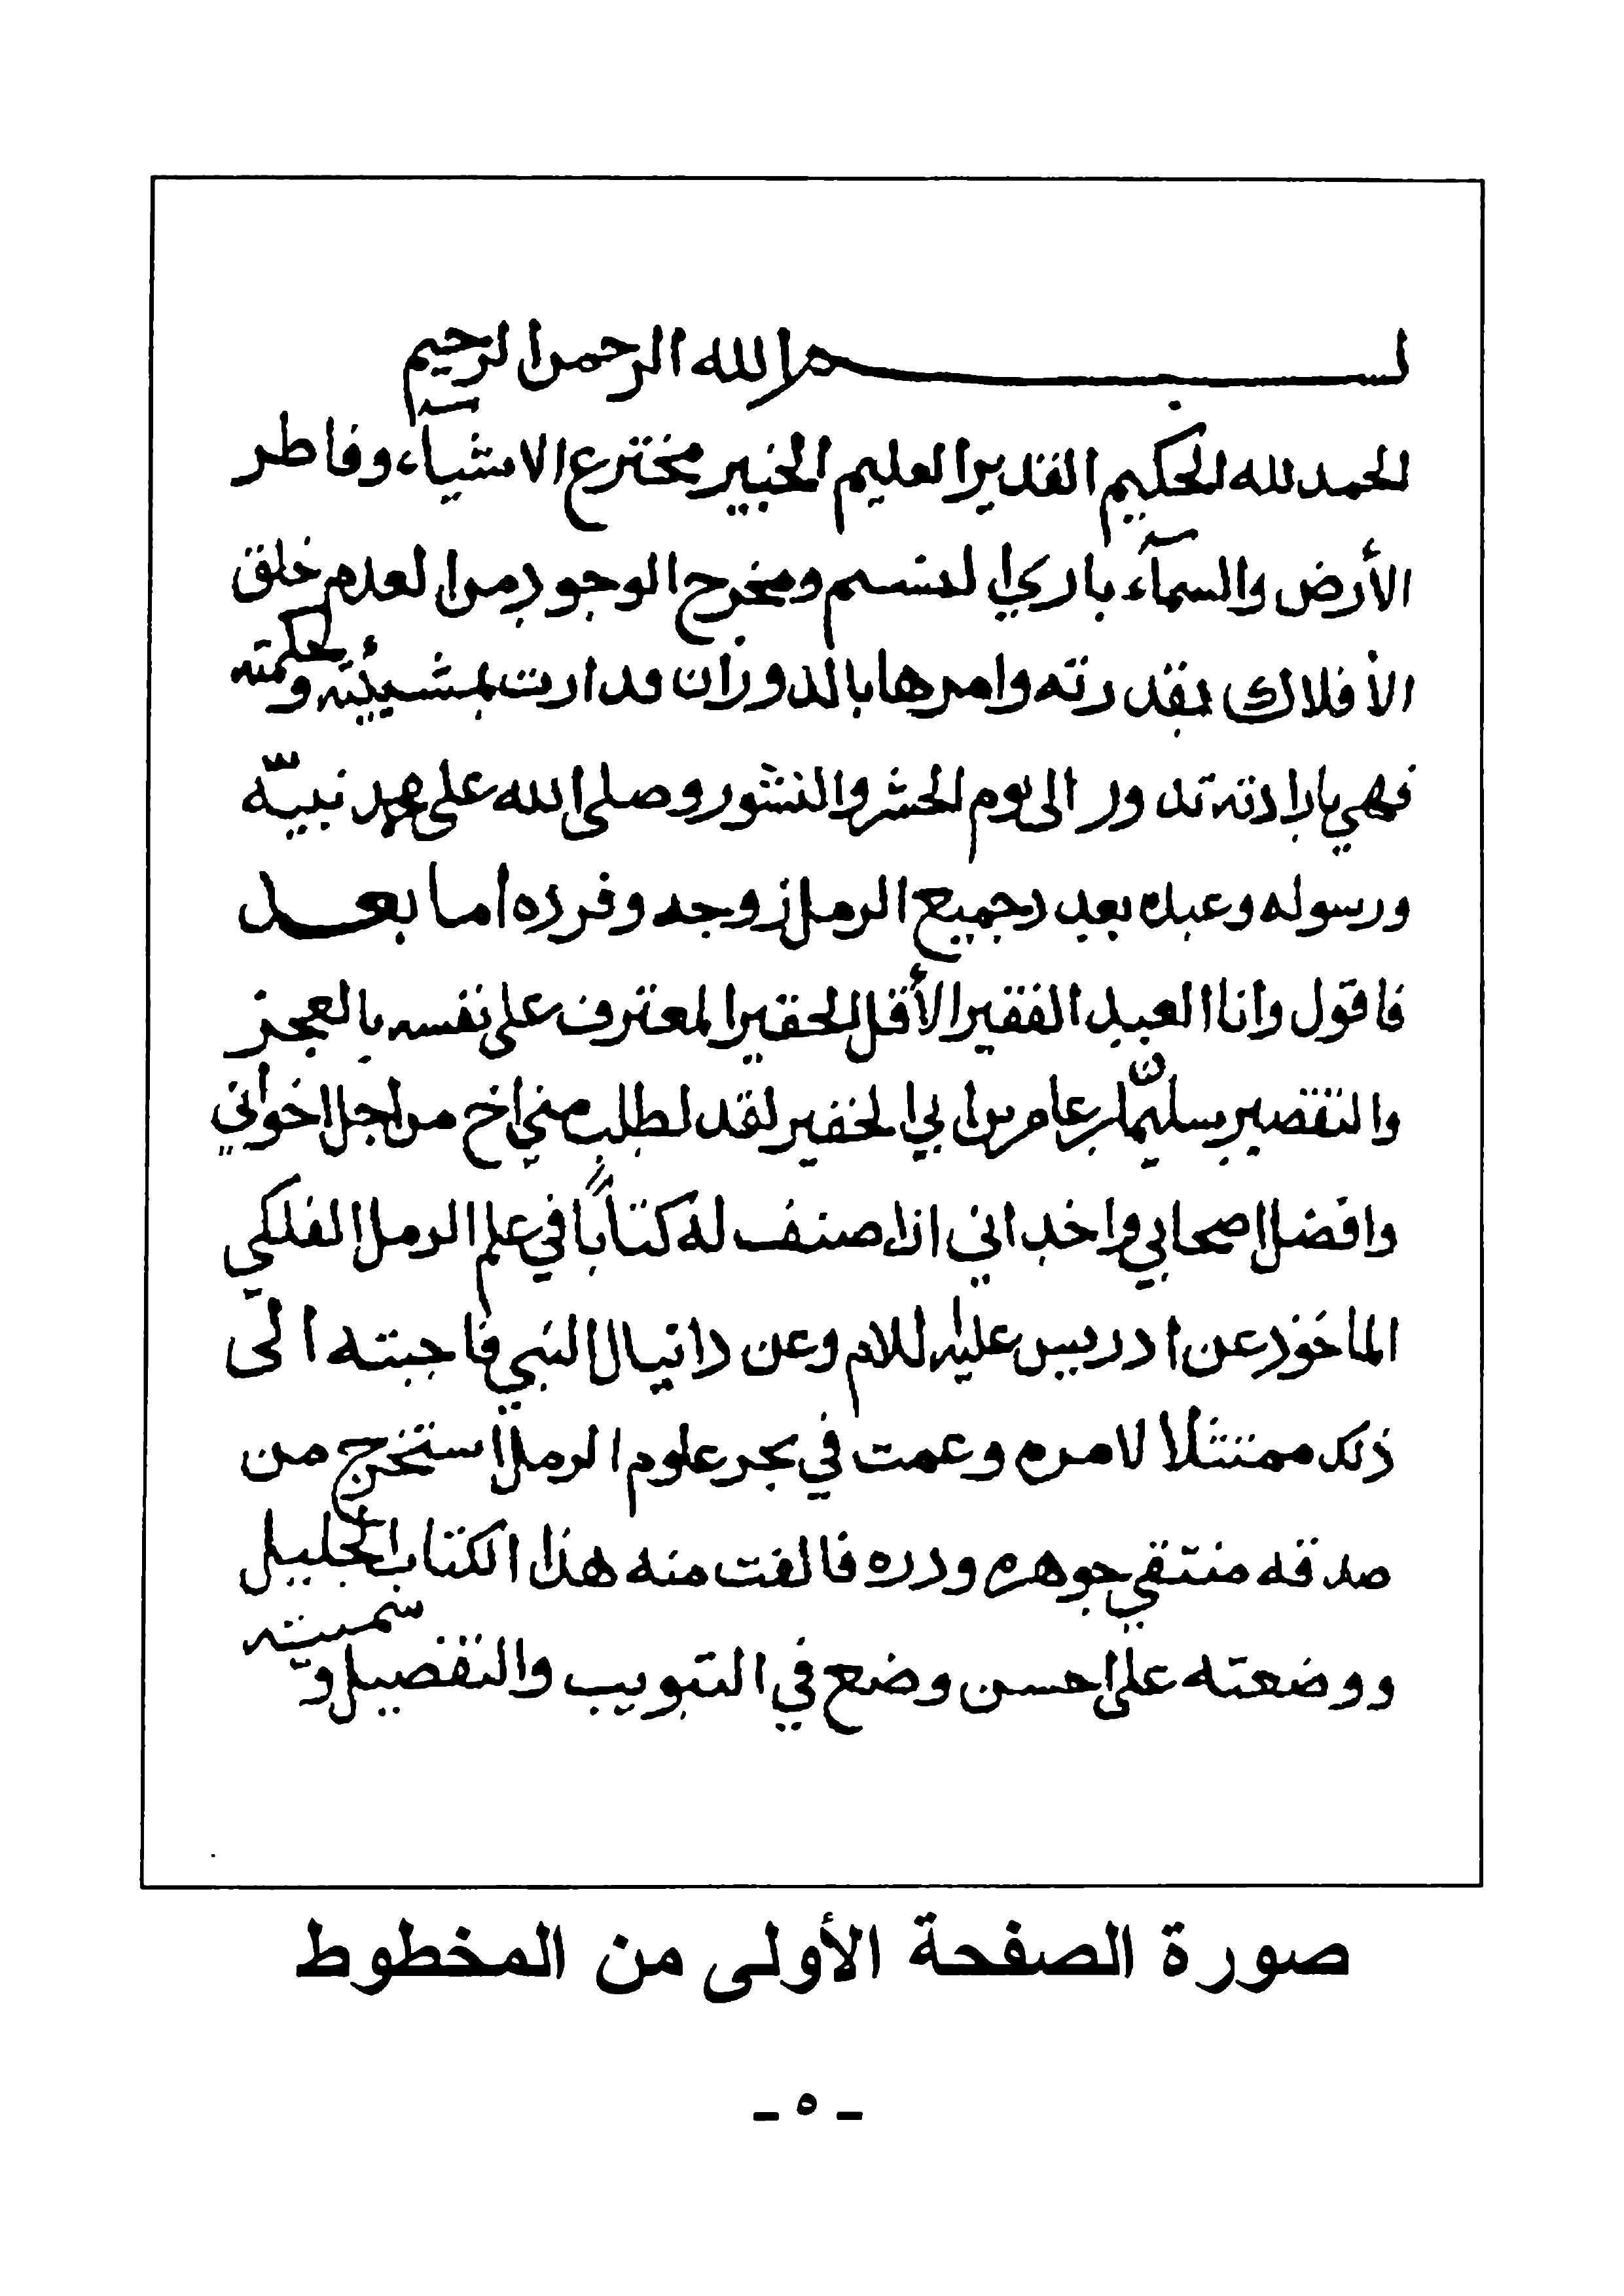 بسم الله الرحمن الرحيم
الحمد لله الحكيم القدير العليم الخبير مخترع الاشيآء وفاطر
الأرض والسمآء باري النسم ومخرج الوجود من العدم خلق
الأفلاك بقدرته وامرها بالدوران فدارت بمشيئته وحكمته
فهي بارادته تدور الى يوم الحشر والنشور وصلى الله على محمد نبيّه
ورسوله وعبده بعدد جميع الرمل زوجه وفرده اما بعد
فاقول وانا العبد الفقير الأقل الحقير المعترف على نفسه بالعجز
والتقصير سليمان بن عامر بن ابي الخفير لقد طلب مني اخ من اجل اخواني
وافضل اصحابي واخداني ان اصنف له كتابًا في علم الرمل الفلكي
الماخوذ عن ادريس عليه السلام وعن دانيال النبي فاجبته الى
ذلك ممتثلا لامره وعمت في بحر علوم الرمل استخرج من
صدفه منتقي جوهره ودره فالفت منه هذا الكتاب الجليل
ووضعته على احسن وضع في التبويب والتفصيل وسميته
صورة الصفحة الأولى من المخطوط
- ٥ -